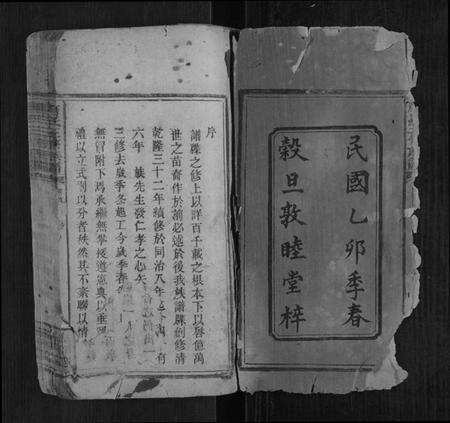 民國乙卯季春
穀旦敦睦堂梓
序
譜牒之修上以詳百千載之根本下以啟億萬
世之苗裔作於前必述於後我族譜牒創修清
乾隆三十二年續修於同治八年
六年 族先生發仁孝之心矢
三修去歲季冬起工今歲季春
無冒附下爲承繼無攀援遵憲典以垂
禮以立式別以分者殊然其不紊聯以情